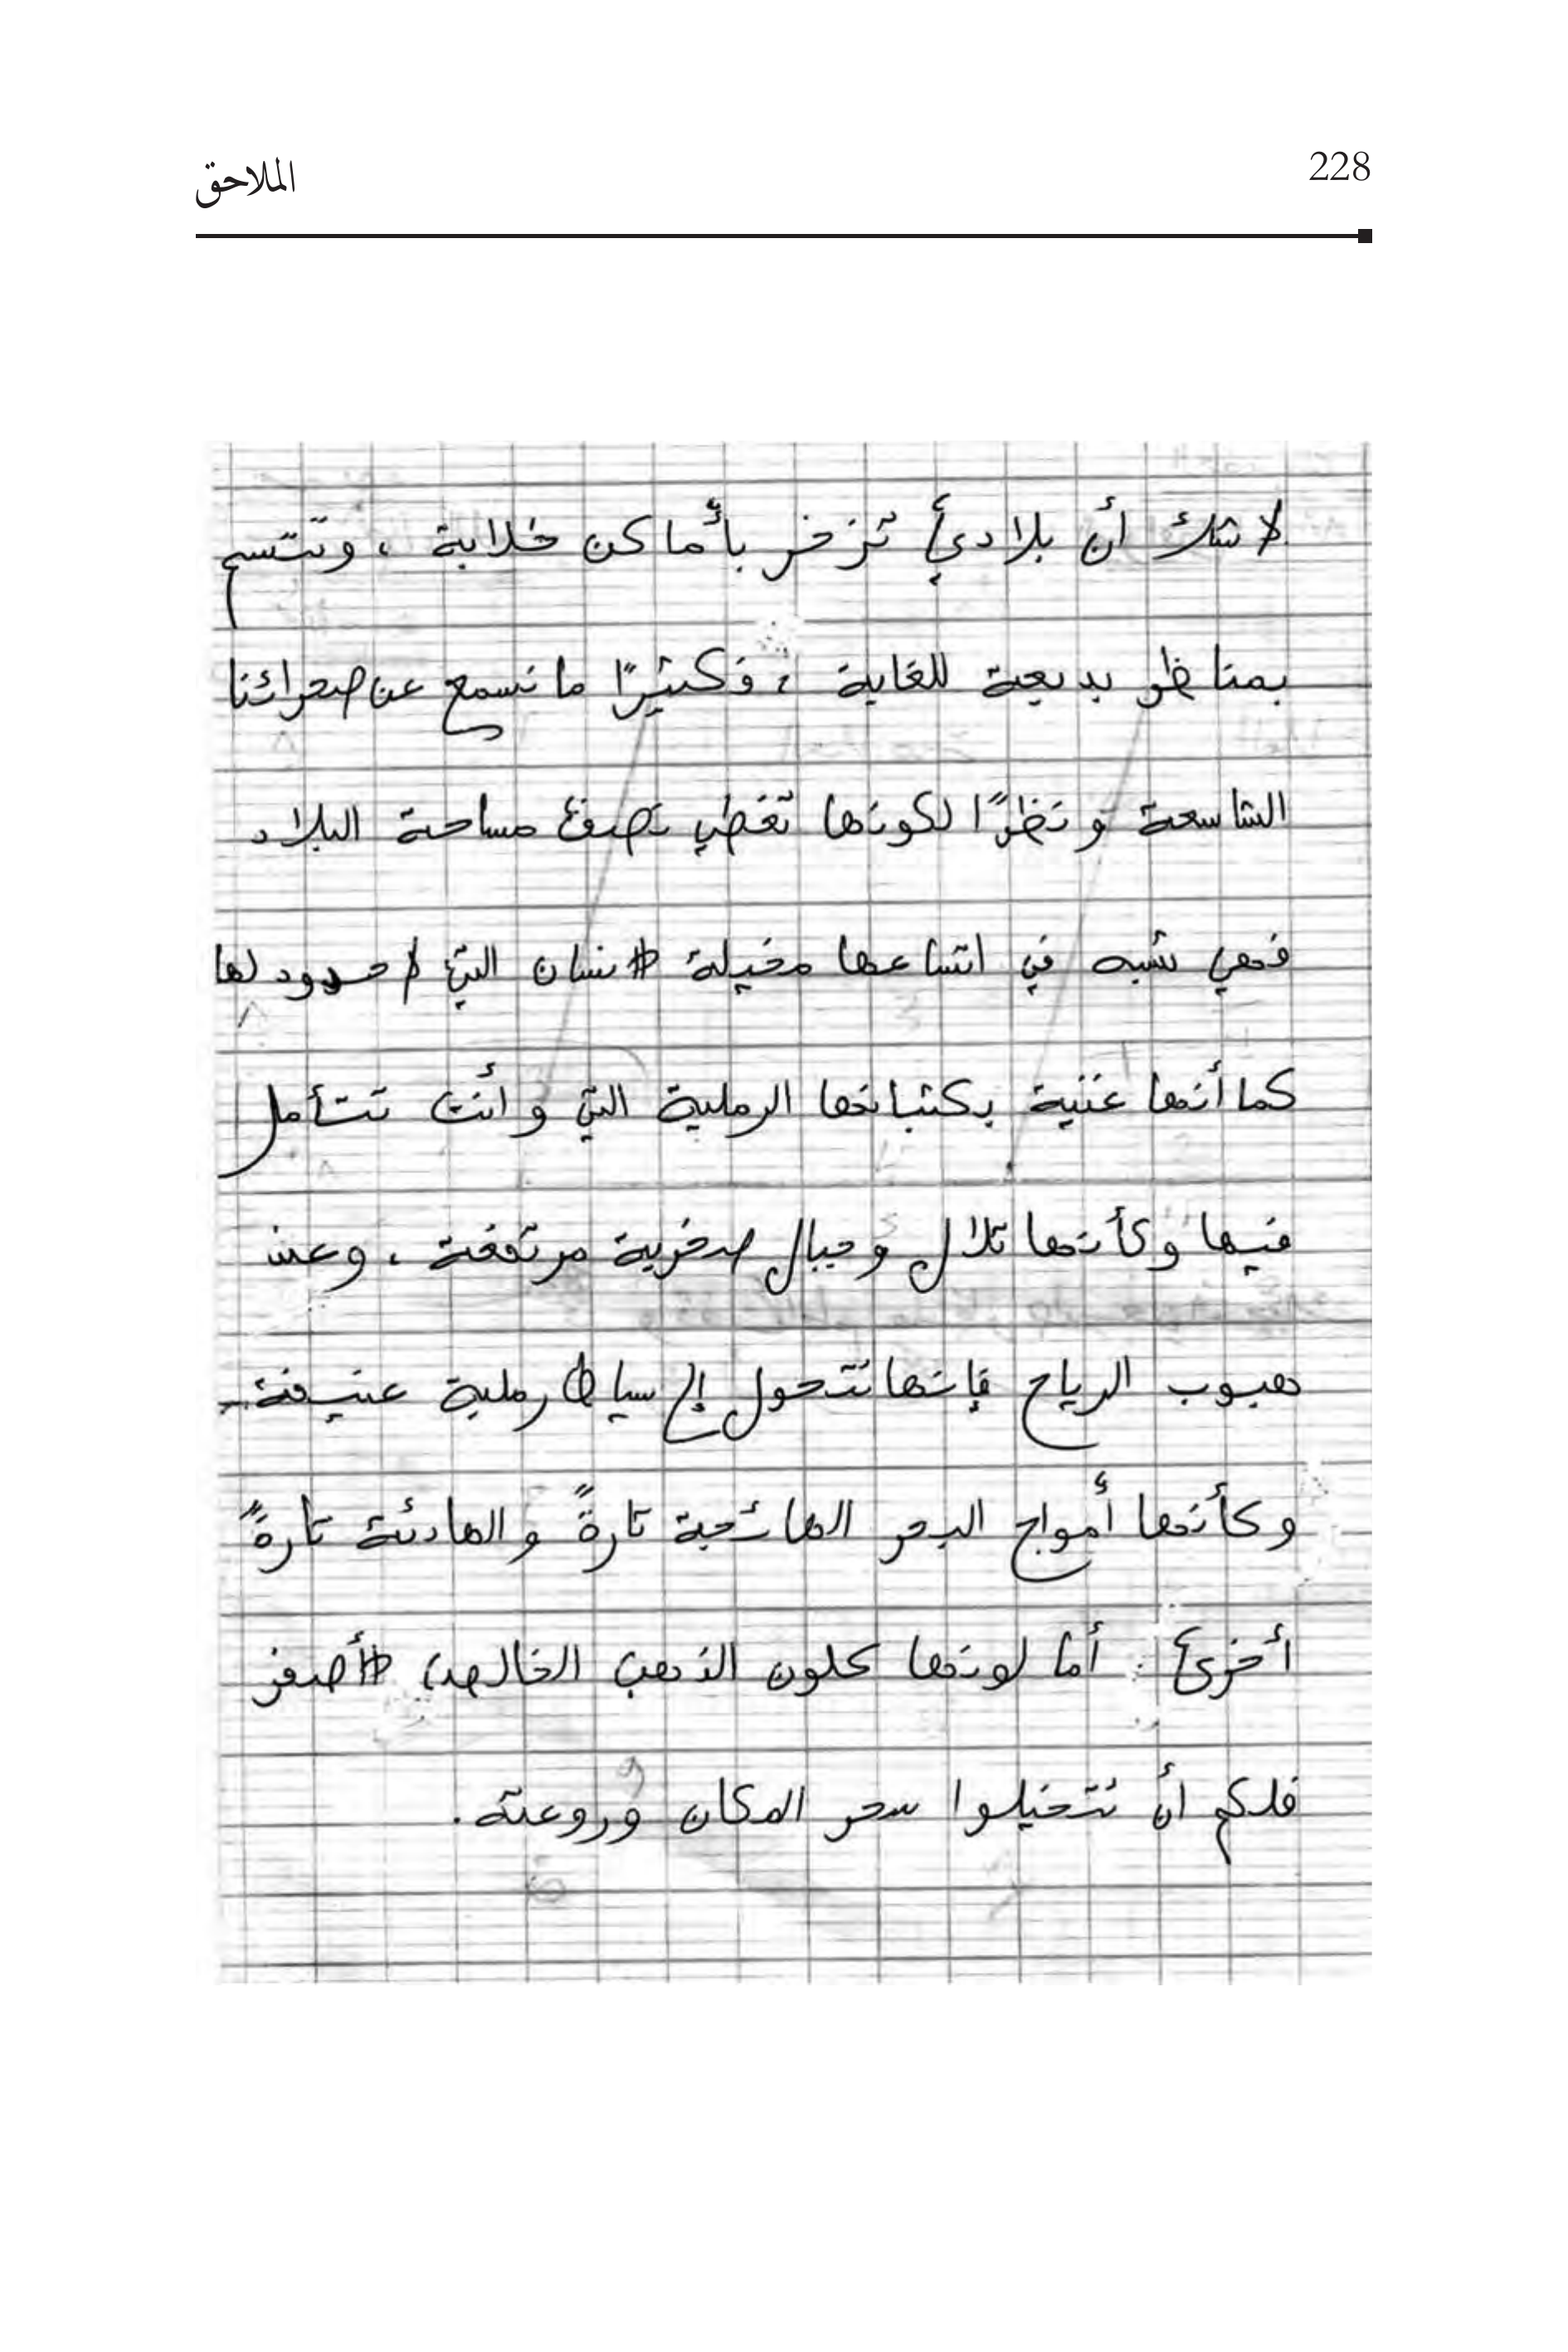 228
الملاحق
لا شك أن بلادي تزخر بأماكن خلابة ، وتتسم
بمناظر بديعة للغاية ، فكثيرًا ما نسمع عن صحرائنا
الشاسعة و نظرًا لكونها تغطي نصف مساحة البلاد
فهي تشبه في اتساعها مخيلة الانسان التي لا حدود لها
كما أنها غنية بكثبانها الرملية التي و أنت تتأمل
فيها وكأنها تلال وجبال صخرية مرتفعة ، وعند
هبوب الرياح فإنها تتحول إلى سياط رملية عنيفة
وكأنها أمواج البحر الهائجة تارةً والهادئة تارةً
أخرى . أما لونها كلون الذهب الخالص الأصفر
فلكم أن تتخيلوا سحر المكان وروعته .